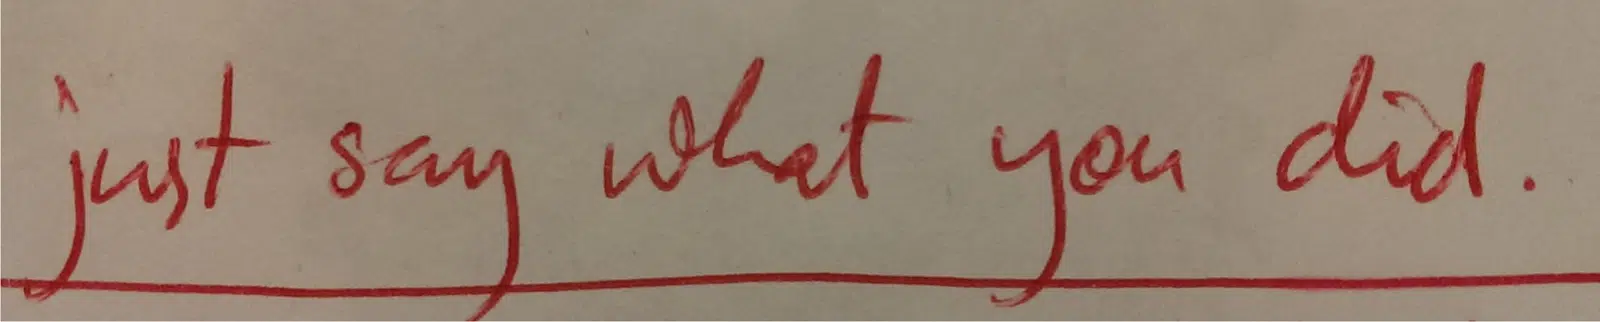 just say what you did.